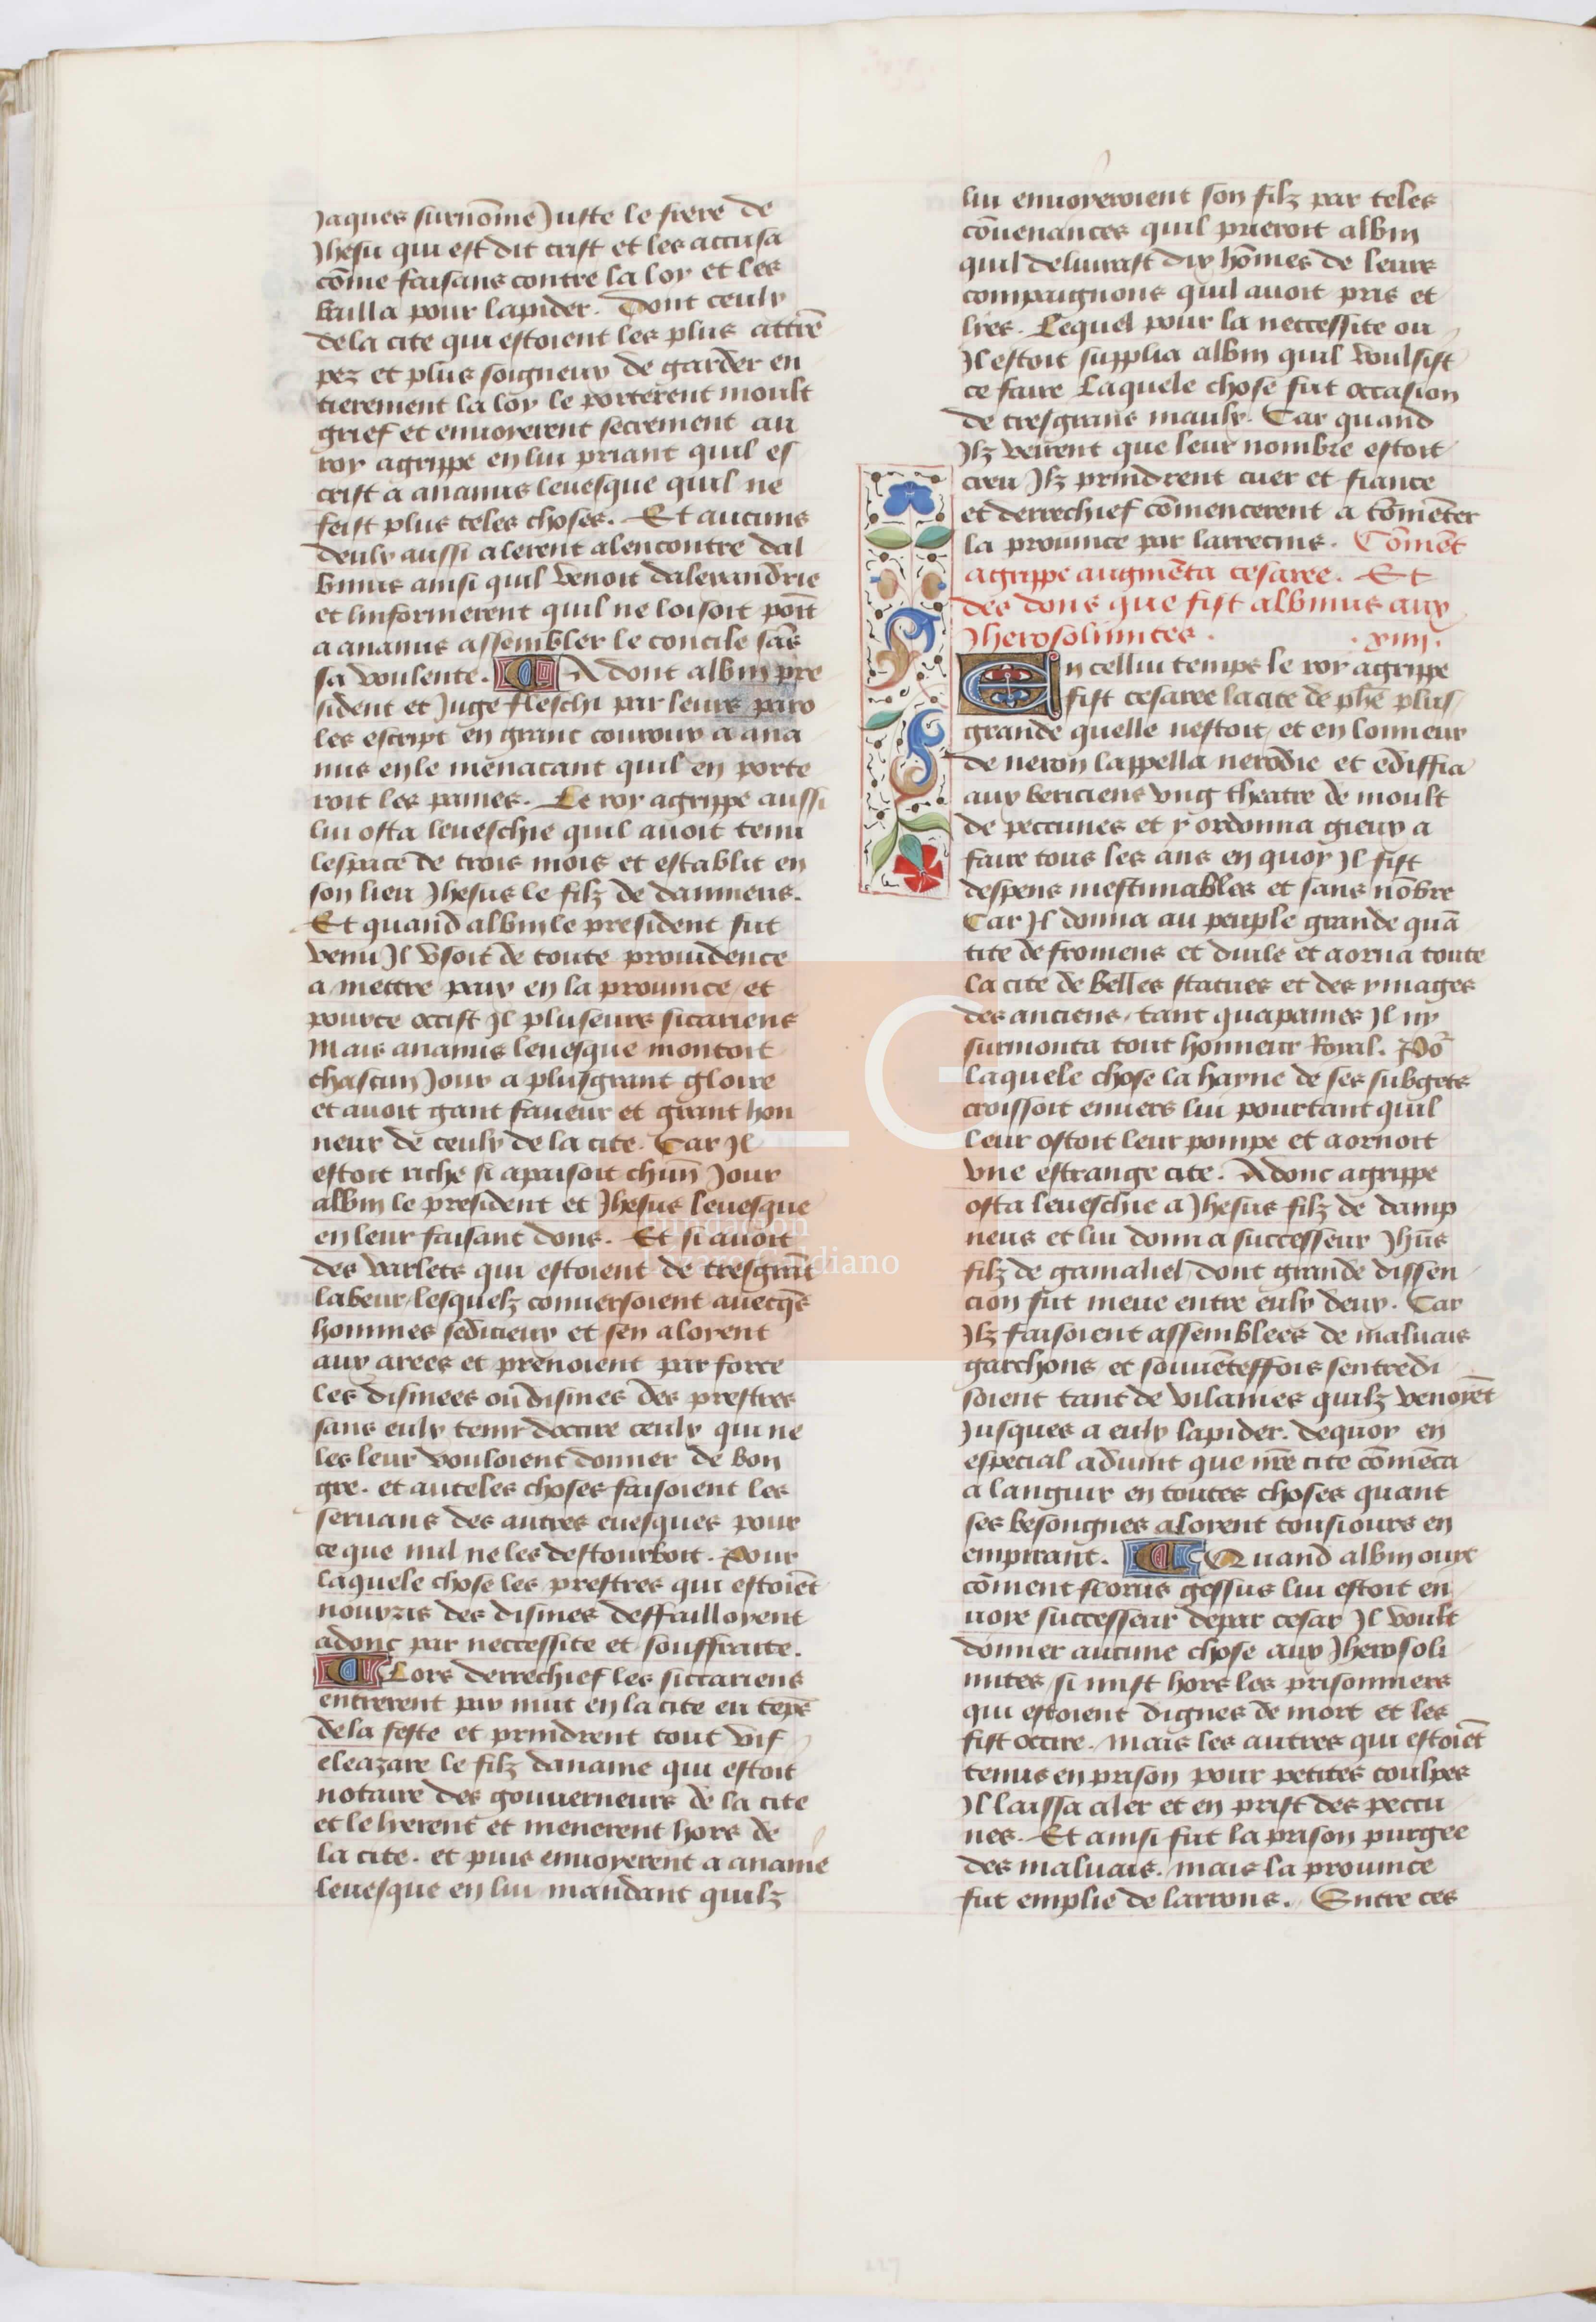 Jaques surnõme Juste le frere de
Jhesu qui est dit crist et les accusa
cõme faisans contre la loy et les
bailla pour lapider. Dont ceulx
de la cite qui estoient les plus attrẽ
pez et plus soigneux de garder en
tierement la loy le porterent moult
grief et enuoyerent secrement au
roy agrippe en lui priant quil es
cript a ananus leuesque quil ne
feist plus teles choses. Et aucuns
deulx aussi alerent alencontre dal
binus ainsi quil venoit dalexandrie
et linformerent quil ne loisoit poĩt
a ananus assembler le concile sãs
sa voulente. Adont albin pre
sident et Juge fleschi par leurs paro
les escript en grant courroux a ana
nus en le menacant quil en porte
roit les paines. Le roy agrippe aussi
lui osta leueschie quil auoit tenu
lespace de trois mois et establit en
son lieu Jhesus le filz de damneus.
Et quand albin le president fut
venu Il vsoit de toute prouidence
a mettre paix en la prouince et
pource occist Il pluseurs sicariens
Mais ananus leuesque montoit
chascun Jour a plusgrant gloire
et auoit gant faueur et grant hon
neur de ceulx de la cite. Car Il
estoit riche si apaisoit chũn Jour
albin le president et Jhesus leuesque
en leur faisant dons. Et si auoit
des varlets qui estoient de tresgrãt
labeur lesquelz conuersoient auecqẽs
hommes sedicieux et sen aloyent
aux arees et prenoient par force
les dismees ou dismes des prestres
sans eulx tenir doccire ceulx qui ne
les leur vouloient donner de bon
gre. et auteles choses faisoient les
seruans des autres euesques pour
ce que nul ne les destourboit. Pour
laquele chose les prestres qui estoiẽt
nourris des dismes deffailloyent
adonc par neccessite et souffraite.
Lors derrechief les siccariens
entrerent par nuit en la cite en tẽps
de la feste et prindrent tout vif
eleazare le filz daname qui estoit
notaire des gouuerneurs de la cite
et le lierent et menerent hors de
la cite. et puis enuoyerent a ananie
leuesque en lui mandant quilz
lui enuoyeroient son filz par teles
cõuenances quil prieroit albin
quil deliurast dix hõmes de leurs
compaignons quil auoit pris et
liies. Lequel pour la neccessite ou
Il estoit supplia albin quil voulsist
ce faire Laquele chose fut occasion
de tresgrans maulx. Car quand
Ilz veirent que leur nombre estoit
creu Ilz prindrent cuer et fiance
et derrechief cõmencerent a tõmẽter
la prouince par larrecins. Cõmẽt
agrippe augmẽta cesaree. Et
des dons que fist albinus aux
Jherosolimites. .xiiii.
En cellui temps le roy agrippe
fist cesaree la cite de phẽ plus
grande quelle nestoit, et en lonneur
de neron lappella nerodie et ediffia
aux bericiens vng theatre de moult
de peccunes et y ordonna gieux a
faire tous les ans en quoy Il fist
despens inestimables et sans nõbre
Car Il donna au peuple grande quã
tite de fromens et duile et aorna toute
la cite de belles statues et des ymages
des anciens, tant qua paines Il ny
surmonta tout honneur Royal. Po᷑
laquele chose la hayne de ses subgets
croissoit enuers lui pourtant quil
leur ostoit leur pompe et aornoit
vne estrange cite. Adonc agrippe
osta leueschie a Jhesus filz de damp
neus et lui donna successeur Jhũs
filz de gamaliel, dont grande dissen
cion fut meue entre eulx deux. Car
Ilz faisoient assemblees de maluais
garchons et souuẽteffois sentredi
soient tant de vilanies quilz venoyẽt
Jusques a eulx lapider. dequoy en
especial aduint que nr̃e cite cõmẽca
a languir en toutes choses quant
ses besongnes aloyent tousiours en
empirant. Quand albin ouyt
cõment florus gessus lui estoit en
uoye successeur de par cesar Il voult
donner aucune chose aux Jherosoli
mites si mist hors les prisonniers
qui estoient dignes de mort et les
fist occire. mais les autres qui estoiẽt
tenus en prison pour petites coulpes
Il laissa aler et en prist des peccu
nes. Et ainsi fut la prison purgee
des maluais. mais la prouince
fut emplie de larrons. Entre ces
FLG
Fundación
Lázaro Galdiano
227